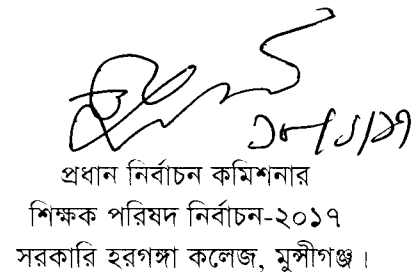 ১৮/১/১৭
প্রধান নির্বাচন কমিশনার
শিক্ষক পরিষদ নির্বাচন-২০১৭
সরকারি হরগঙ্গা কলেজ, মুন্সীগঞ্জ।